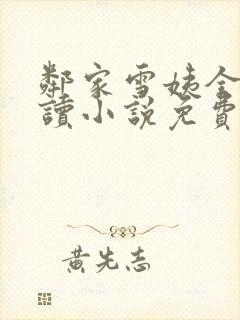 鄰家雪姨全
讀小説免費
黃先志